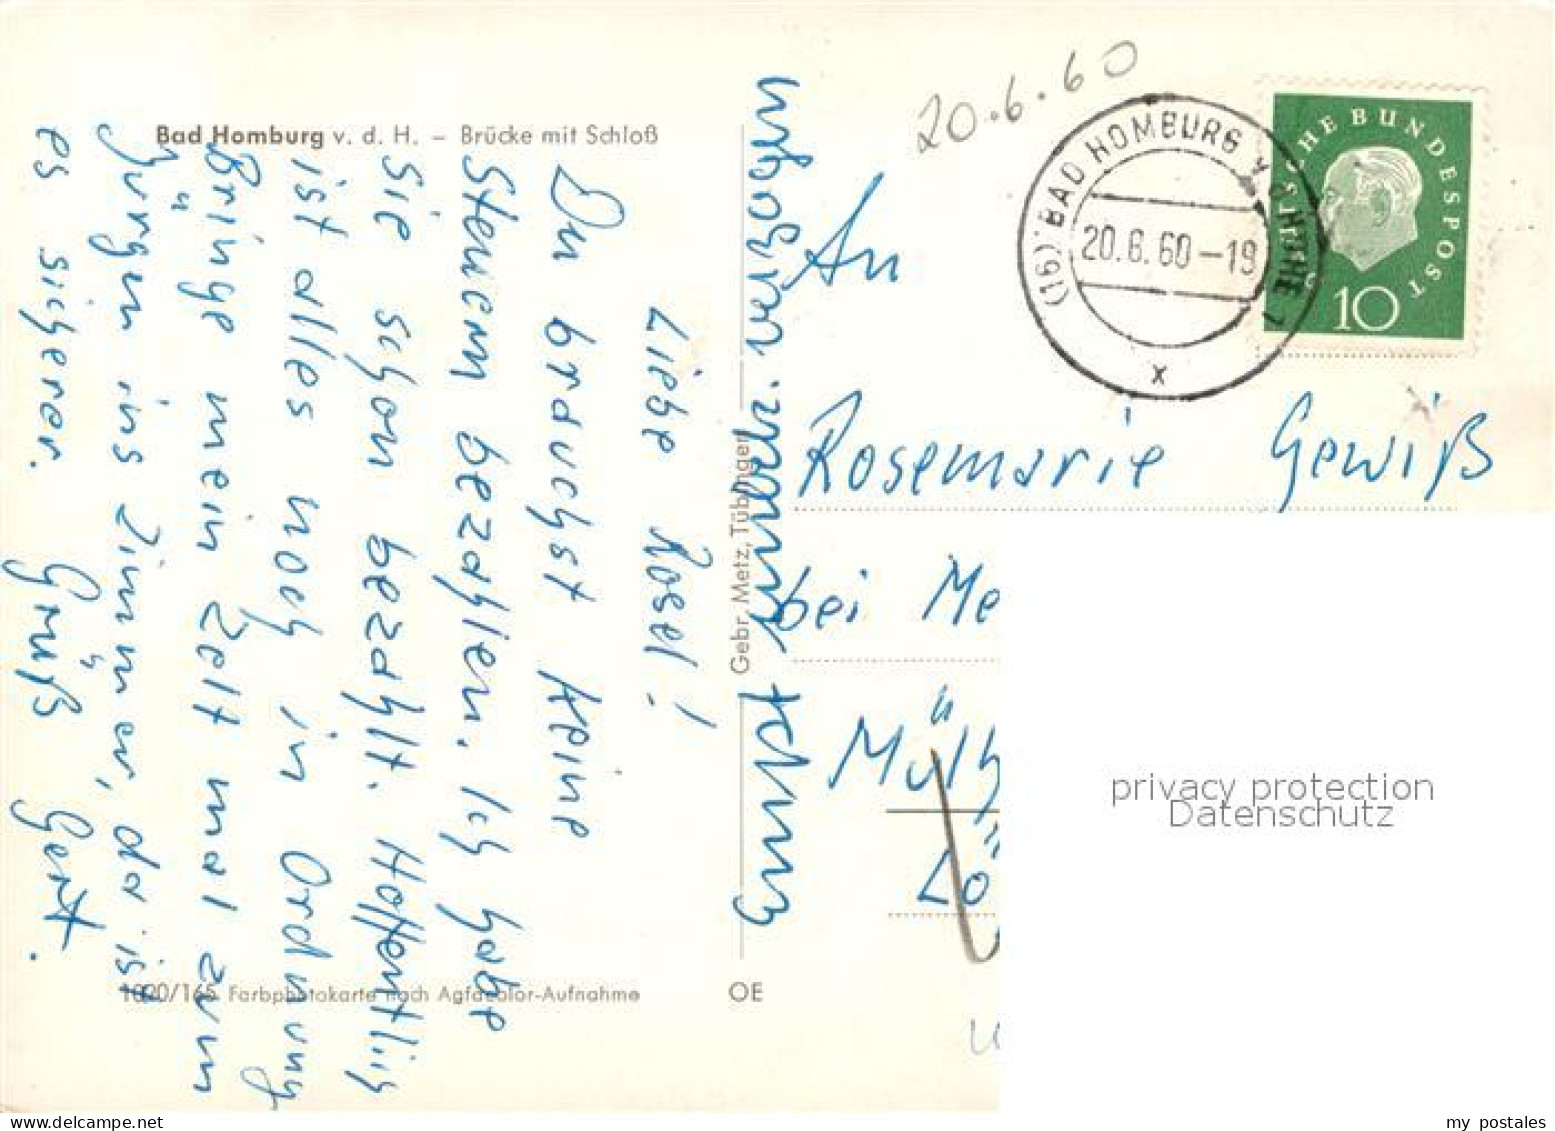 Bad Homburg v. d. H. – Brücke mit Schloß
Liebe Rosel!
Du brauchst keine
Steuern bezahlen. Ich habe
Sie schon bezahlt. Hoffentlich
ist alles noch in Ordnung
Bringe mein Zelt mal zum
Jürgen ins Zimmer, da ist
es sicherer. Gruß Gert.
1020/165 Farbphotokarte nach Agfacolor-Aufnahme
OE
Gebr. Metz, Tübingen
verzogen
20.6.60
(16) BAD HOMBURG v d HÖHE 1
20.6.60–19
x
DEUTSCHE BUNDESPOST
10
An
Rosemarie Gewiß
bei Me
Mülh
Lö
privacy protection
Datenschutz
my postales